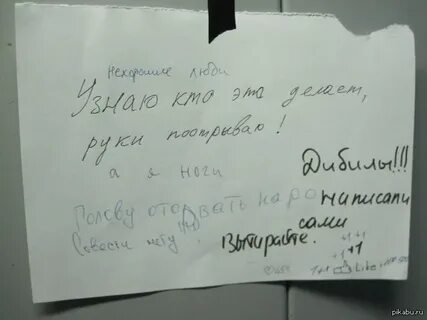 нехорошие люди
Узнаю кто эта делает,
руки поотрываю!
а я ноги
Дибилы!!!
Голову оторвать надо
написали
сами
Совести нету!!!
Вытирайте.
+1 +1
+1
1+1
Like
pikabu.ru